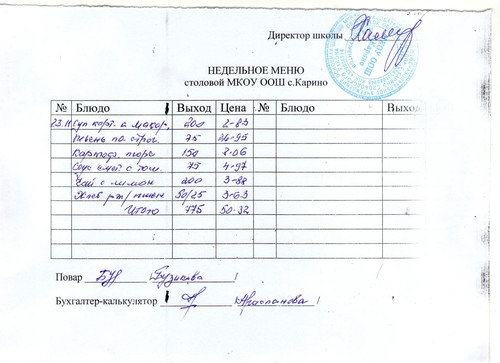 Директор школы
МКОУ ООШ
с.Карино
НЕДЕЛЬНОЕ МЕНЮ
столовой МКОУ ООШ с.Карино
№ Блюдо Выход Цена № Блюдо Выход
23.11 Суп карт. с макар. 200 2-83
Печень по строг. 75 26-95
Картоф. пюре 150 8-06
Соус смет. с том. 75 4-97
Чай с лимон 200 3-88
Хлеб рж/пшен 50/25 3-63
Итого 775 50-32
Повар Бузикова
Бухгалтер-калькулятор